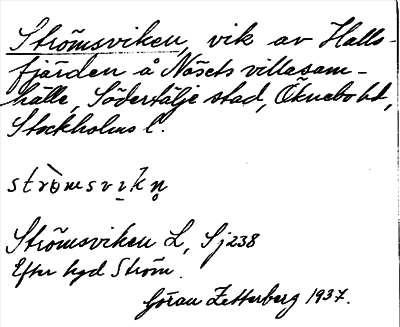 Strömsviken, vik av Halls-
fjärden å Näsets villasam-
hälle, Södertälje stad, Öknebo hd,
Stockholms l.
Strömsviken L, Sj 238
Efter hyd Ström.
Göran Zetterberg 1937.